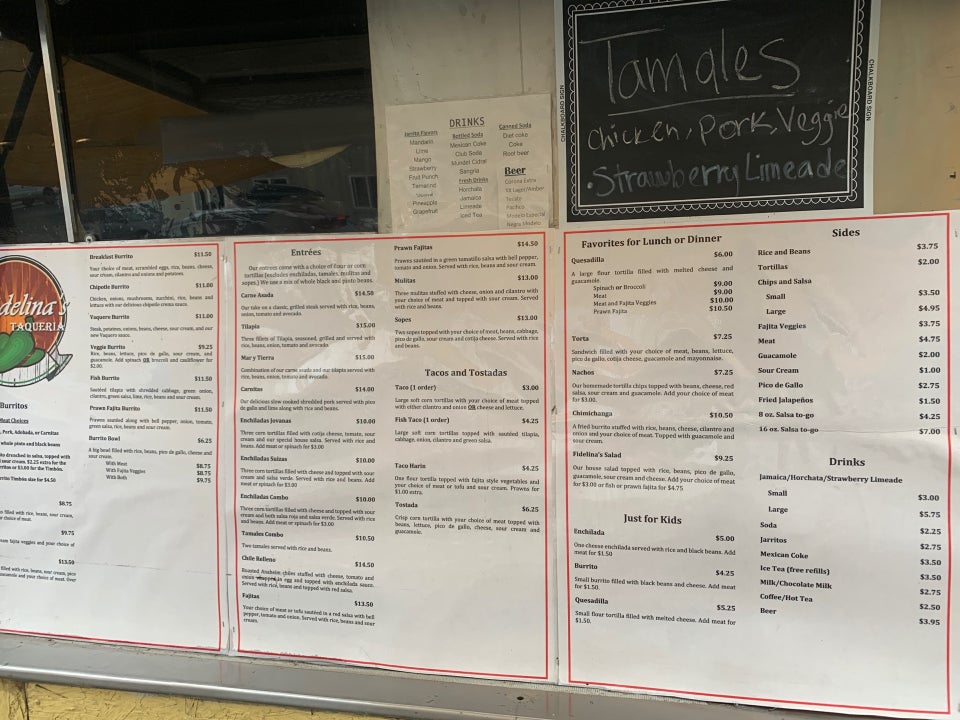 Tamales
Chicken, Pork, Veggie
. Strawberry Limeade
CHALKBOARD SIGN
CHALKBOARD SIGN
DRINKS
Jarritos Flavors
Mandarin
Lime
Mango
Strawberry
Fruit Punch
Tamarind
Pineapple
Grapefruit
Bottled Soda
Mexican Coke
Club Soda
Mundet Cidral
Sangria
Fresh Drinks
Horchata
Jamaica
Limeade
Iced Tea
Canned Soda
Diet coke
Coke
Root beer
Beer
Corona Extra
XX Lager/Amber
Tecate
Pacifico
Modelo Especial
Negra Modelo
delina's
TAQUERIA
Burritos
Meat Choices
, Pork, Adobada, or Carnitas
whole pinto and black beans
$8.75
$9.75
$13.50
Breakfast Burrito $11.50
Your choice of meat, scrambled eggs, rice, beans, cheese,
sour cream, cilantro and onions and potatoes.
Chipotle Burrito $11.00
Chicken, onions, mushrooms, zucchini, rice, beans and
lettuce with our delicious chipotle crema sauce.
Vaquero Burrito $11.00
Steak, potatoes, onions, beans, cheese, sour cream, and our
new Vaquero sauce.
Veggie Burrito $9.25
Rice, beans, lettuce, pico de gallo, sour cream, and
guacamole. Add spinach OR broccoli and cauliflower for
$2.00.
Fish Burrito $11.50
Sautéed tilapia with shredded cabbage, green onion,
cilantro, green salsa, lime, rice, beans and sour cream.
Prawn Fajita Burrito $11.50
Prawns sautéed along with bell pepper, onion, tomato,
green salsa, rice, beans and sour cream.
Burrito Bowl $6.25
A big bowl filled with rice, beans, pico de gallo, cheese and
sour cream.
With Meat $8.75
With Fajita Veggies $8.75
With Both $9.75
Entrées
Our entrees come with a choice of flour or corn
tortillas (excludes enchiladas, tamales, mulitas and
sopes.) We use a mix of whole black and pinto beans.
Carne Asada $14.50
Our take on a classic, grilled steak served with rice, beans,
onion, tomato and avocado.
Tilapia $15.00
Three fillets of Tilapia, seasoned, grilled and served with
rice, beans, onion, tomato and avocado.
Mar y Tierra $15.00
Combination of our carne asada and our tilapia served with
rice, beans, onion, tomato and avocado.
Carnitas $14.00
Our delicious slow cooked shredded pork served with pico
de gallo and lime along with rice and beans.
Enchiladas Jovanas $10.00
Three corn tortillas filled with cotija cheese, tomato, sour
cream and our special house salsa. Served with rice and
beans. Add meat or spinach for $3.00
Enchiladas Suizas $10.00
Three corn tortillas filled with cheese and topped with sour
cream and salsa verde. Served with rice and beans. Add
meat or spinach for $3.00
Enchiladas Combo $10.00
Three corn tortillas filled with cheese and topped with sour
cream and both salsa roja and salsa verde. Served with rice
and beans. Add meat or spinach for $3.00
Tamales Combo $10.50
Two tamales served with rice and beans.
Chile Relleno $14.50
Roasted Anaheim chiles stuffed with cheese, tomato and
onion wrapped in egg and topped with enchilada sauce.
Served with rice, beans and topped with red salsa.
Fajitas $13.50
Your choice of meat or tofu sautéed in a red salsa with bell
pepper, tomato and onion. Served with rice, beans and sour
cream.
Prawn Fajitas $14.50
Prawns sautéed in a green tomatillo salsa with bell pepper,
tomato and onion. Served with rice, beans and sour cream.
Mulitas $13.00
Three mulitas stuffed with cheese, onion and cilantro with
your choice of meat and topped with sour cream. Served
with rice and beans.
Sopes $13.00
Two sopes topped with your choice of meat, beans, cabbage,
pico de gallo, sour cream and cotija cheese. Served with rice
and beans.
Tacos and Tostadas
Taco (1 order) $3.00
Large soft corn tortillas with your choice of meat topped
with either cilantro and onion OR cheese and lettuce.
Fish Taco (1 order) $4.25
Large soft corn tortillas topped with sautéed tilapia,
cabbage, onion, cilantro and green salsa.
Taco Harin $4.25
One flour tortilla topped with fajita style vegetables and
your choice of meat or tofu and sour cream. Prawns for
$1.00 extra.
Tostada $6.25
Crisp corn tortilla with your choice of meat topped with
beans, lettuce, pico de gallo, cheese, sour cream and
guacamole.
Favorites for Lunch or Dinner
Quesadilla $6.00
A large flour tortilla filled with melted cheese and
guacamole.
Spinach or Broccoli $9.00
Meat $9.00
Meat and Fajita Veggies $10.00
Prawn Fajita $10.50
Torta $7.25
Sandwich filled with your choice of meat, beans, lettuce,
pico de gallo, cotija cheese, guacamole and mayonnaise.
Nachos $7.25
Our homemade tortilla chips topped with beans, cheese, red
salsa, sour cream and guacamole. Add your choice of meat
for $3.00.
Chimichanga $10.50
A fried burrito stuffed with rice, beans, cheese, cilantro and
onions and your choice of meat. Topped with guacamole and
sour cream.
Fidelina's Salad $9.25
Our house salad topped with rice, beans, pico de gallo,
guacamole, sour cream and cheese. Add your choice of meat
for $3.00 or fish or prawn fajita for $4.75
Just for Kids
Enchilada $5.00
One cheese enchilada served with rice and black beans. Add
meat for $1.50
Burrito $4.25
Small burrito filled with black beans and cheese. Add meat
for $1.50.
Quesadilla $5.25
Small flour tortilla filled with melted cheese. Add meat for
$1.50.
Sides
Rice and Beans $3.75
Tortillas $2.00
Chips and Salsa
Small $3.50
Large $4.95
Fajita Veggies $3.75
Meat $4.75
Guacamole $2.00
Sour Cream $1.00
Pico de Gallo $2.75
Fried Jalapeños $1.50
8 oz. Salsa to-go $4.25
16 oz. Salsa to-go $7.00
Drinks
Jamaica/Horchata/Strawberry Limeade
Small $3.00
Large $5.75
Soda $2.25
Jarritos $2.75
Mexican Coke $3.50
Ice Tea (free refills) $3.50
Milk/Chocolate Milk $2.75
Coffee/Hot Tea $2.50
Beer $3.95